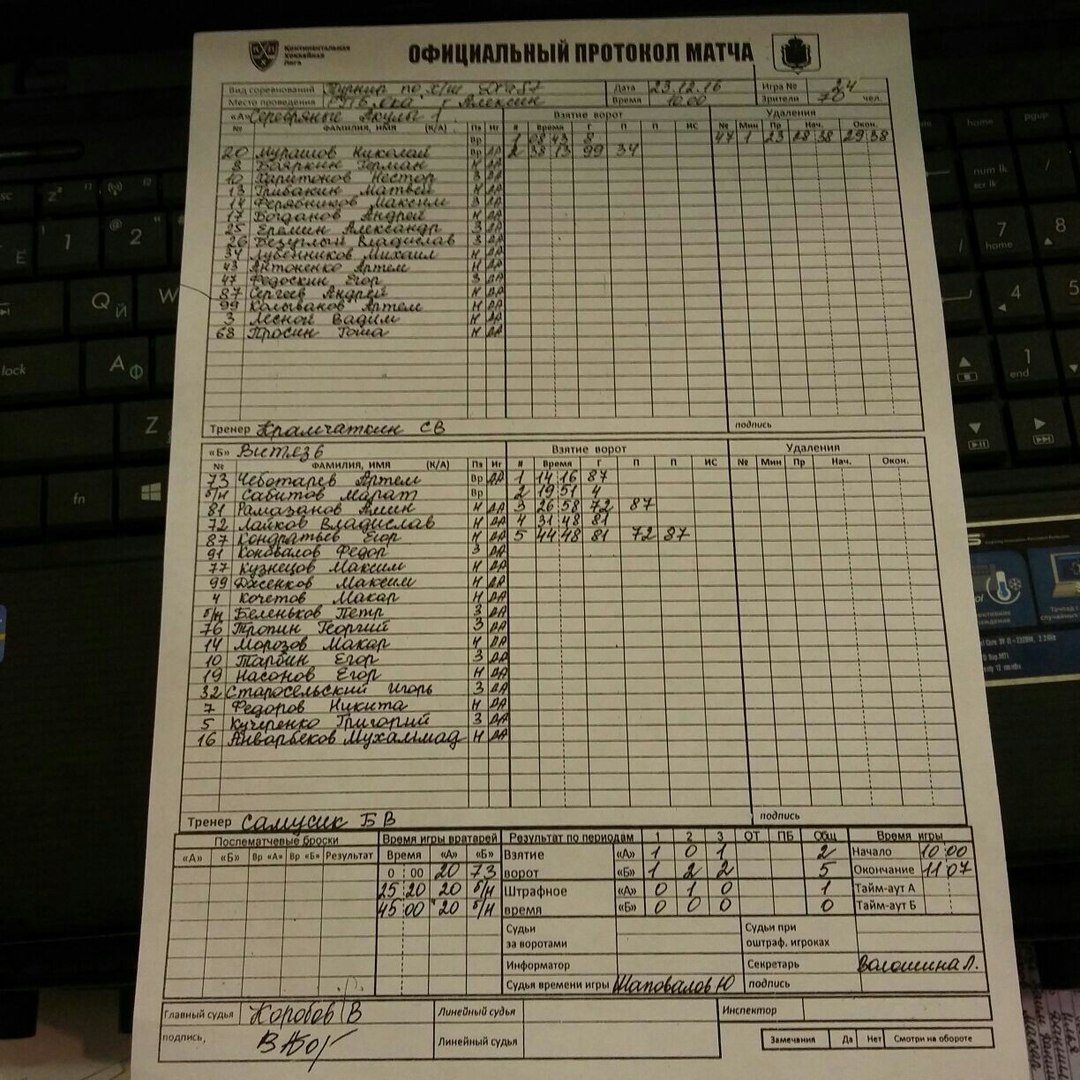 Континентальная
хоккейная
лига
ОФИЦИАЛЬНЫЙ ПРОТОКОЛ МАТЧА
Вид соревнований Турнир по х/ш Дата 23.12.16 Игра № 24
Место проведения г Алексин Время 10.00 Зрители 70 чел.
«А» Серебряные Акулы 1 Взятие ворот Удаления
№ ФАМИЛИЯ, ИМЯ (К/А) Пз Иг # Время Г П П ИС № Мин Пр Нач. Окон.
Вр 1 08 43 8 47 1 23 28 38 29 38
20 Мурашов Николай Вр ДА 2 38 13 99 34
8 Бояркин Герман Н ДА
10 Харитонов Нестор З ДА
13 Грибакин Матвей Н ДА
14 Ферябников Максим З ДА
17 Богданов Андрей Н ДА
25 Еремин Александр З ДА
26 Безуглый Владислав З ДА
34 Лубенников Михаил Н ДА
43 Антоненко Артем Н ДА
47 Федоскин Егор З ДА
87 Сергеев Андрей Н ДА
99 Колыванов Артем Н ДА
3 Лесной Вадим Н ДА
63 Просин Гоша Н ДА
Тренер Крамчаткин СВ подпись
«Б» Витязь Взятие ворот Удаления
№ ФАМИЛИЯ, ИМЯ (К/А) Пз Иг # Время Г П П ИС № Мин Пр Нач. Окон.
73 Чеботарев Артем Вр ДА 1 14 16 87
б/н Сабитов Марат Вр 2 19 51 4
81 Рамазанов Амин Н ДА 3 26 58 72 87
72 Лайков Владислав Н ДА 4 31 48 81
87 Кондратьев Егор Н ДА 5 44 48 81 72 87
91 Коновалов Федор З ДА
77 Кузнецов Максим Н ДА
99 Максим Н ДА
4 Кочетов Макар Н ДА
б/н Беленьков Петр З ДА
76 Тропин Георгий З ДА
14 Морозов Макар Н ДА
10 Тарбин Егор З ДА
19 Насонов Егор Н ДА
32 Старосельский Игорь З ДА
7 Федоров Никита Н ДА
5 Кучеренко Григорий З ДА
16 Анварбеков Мухаммад Н ДА
Тренер Самусик БВ подпись
Послематчевые броски Время игры вратарей Результат по периодам 1 2 3 ОТ ПБ Общ Время игры
«А» «Б» Вр «А» Вр «Б» Результат Время «А» «Б» Взятие «А» 1 0 1 2 Начало 10 00
0 00 20 73 ворот «Б» 1 2 2 5 Окончание 11 07
25 20 20 б/н Штрафное «А» 0 1 0 1 Тайм-аут А
45 00 20 б/н время «Б» 0 0 0 0 Тайм-аут Б
Судьи за воротами Судьи при оштраф. игроках
Информатор Секретарь Волошина Л.
Судья времени игры Шаповалов Ю подпись
Главный судья Коробов В Линейный судья Инспектор
подпись, Линейный судья Замечания Да Нет Смотри на обороте